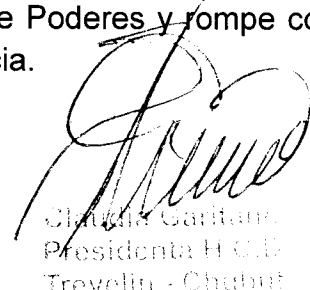 e Poderes y rompe co
cia.
Claudia Garitano
Presidenta H.C.D
Trevelin - Chubut